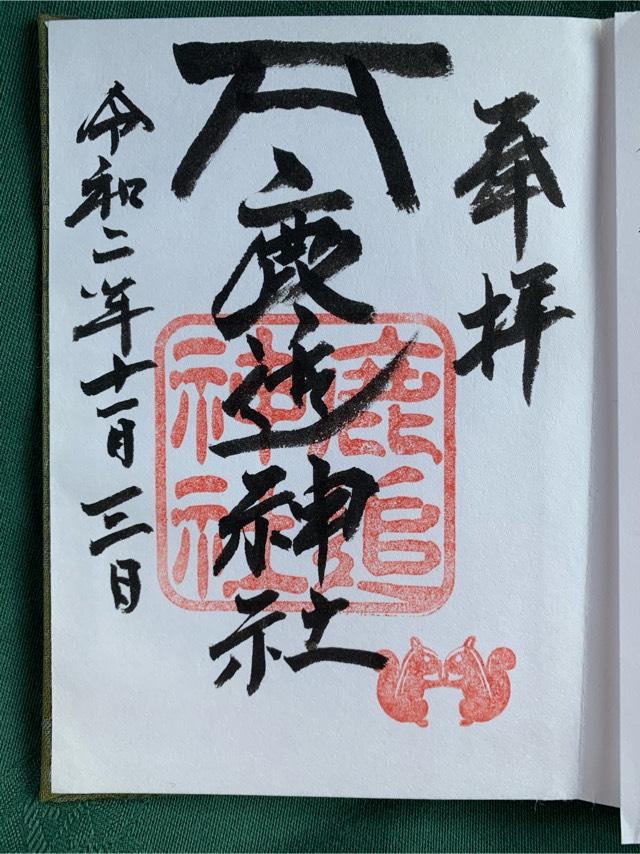 奉拝
鹿追神社
令和二年十一月三日
鹿追
神社